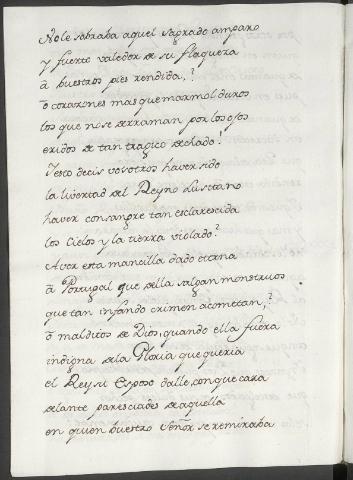 No le sobraba aquel sagrado amparo
y fuerte valedor de su flaqueza
â buestros pies rendida,?
ô corazones mas que marmol duros
los que no se derraman por los ojos
exidos de tan tragico dechado!
Y esto decis vosotros haver sido
la livertad del Reyno Lusitano
haver con sangre tan esclarescida
los Cielos y la tierra violado?
Aver esta mancilla dado eterna
â Portugal que della salgan monstruos
que tan infando crimen acometan,?
ô malditos de Dios, quando ella fuera
indigna de la Gloria que queria
el Rey su Esposo dalle, con que cara
delante paresciades de aquella
en quien buestro Señor se remiraba